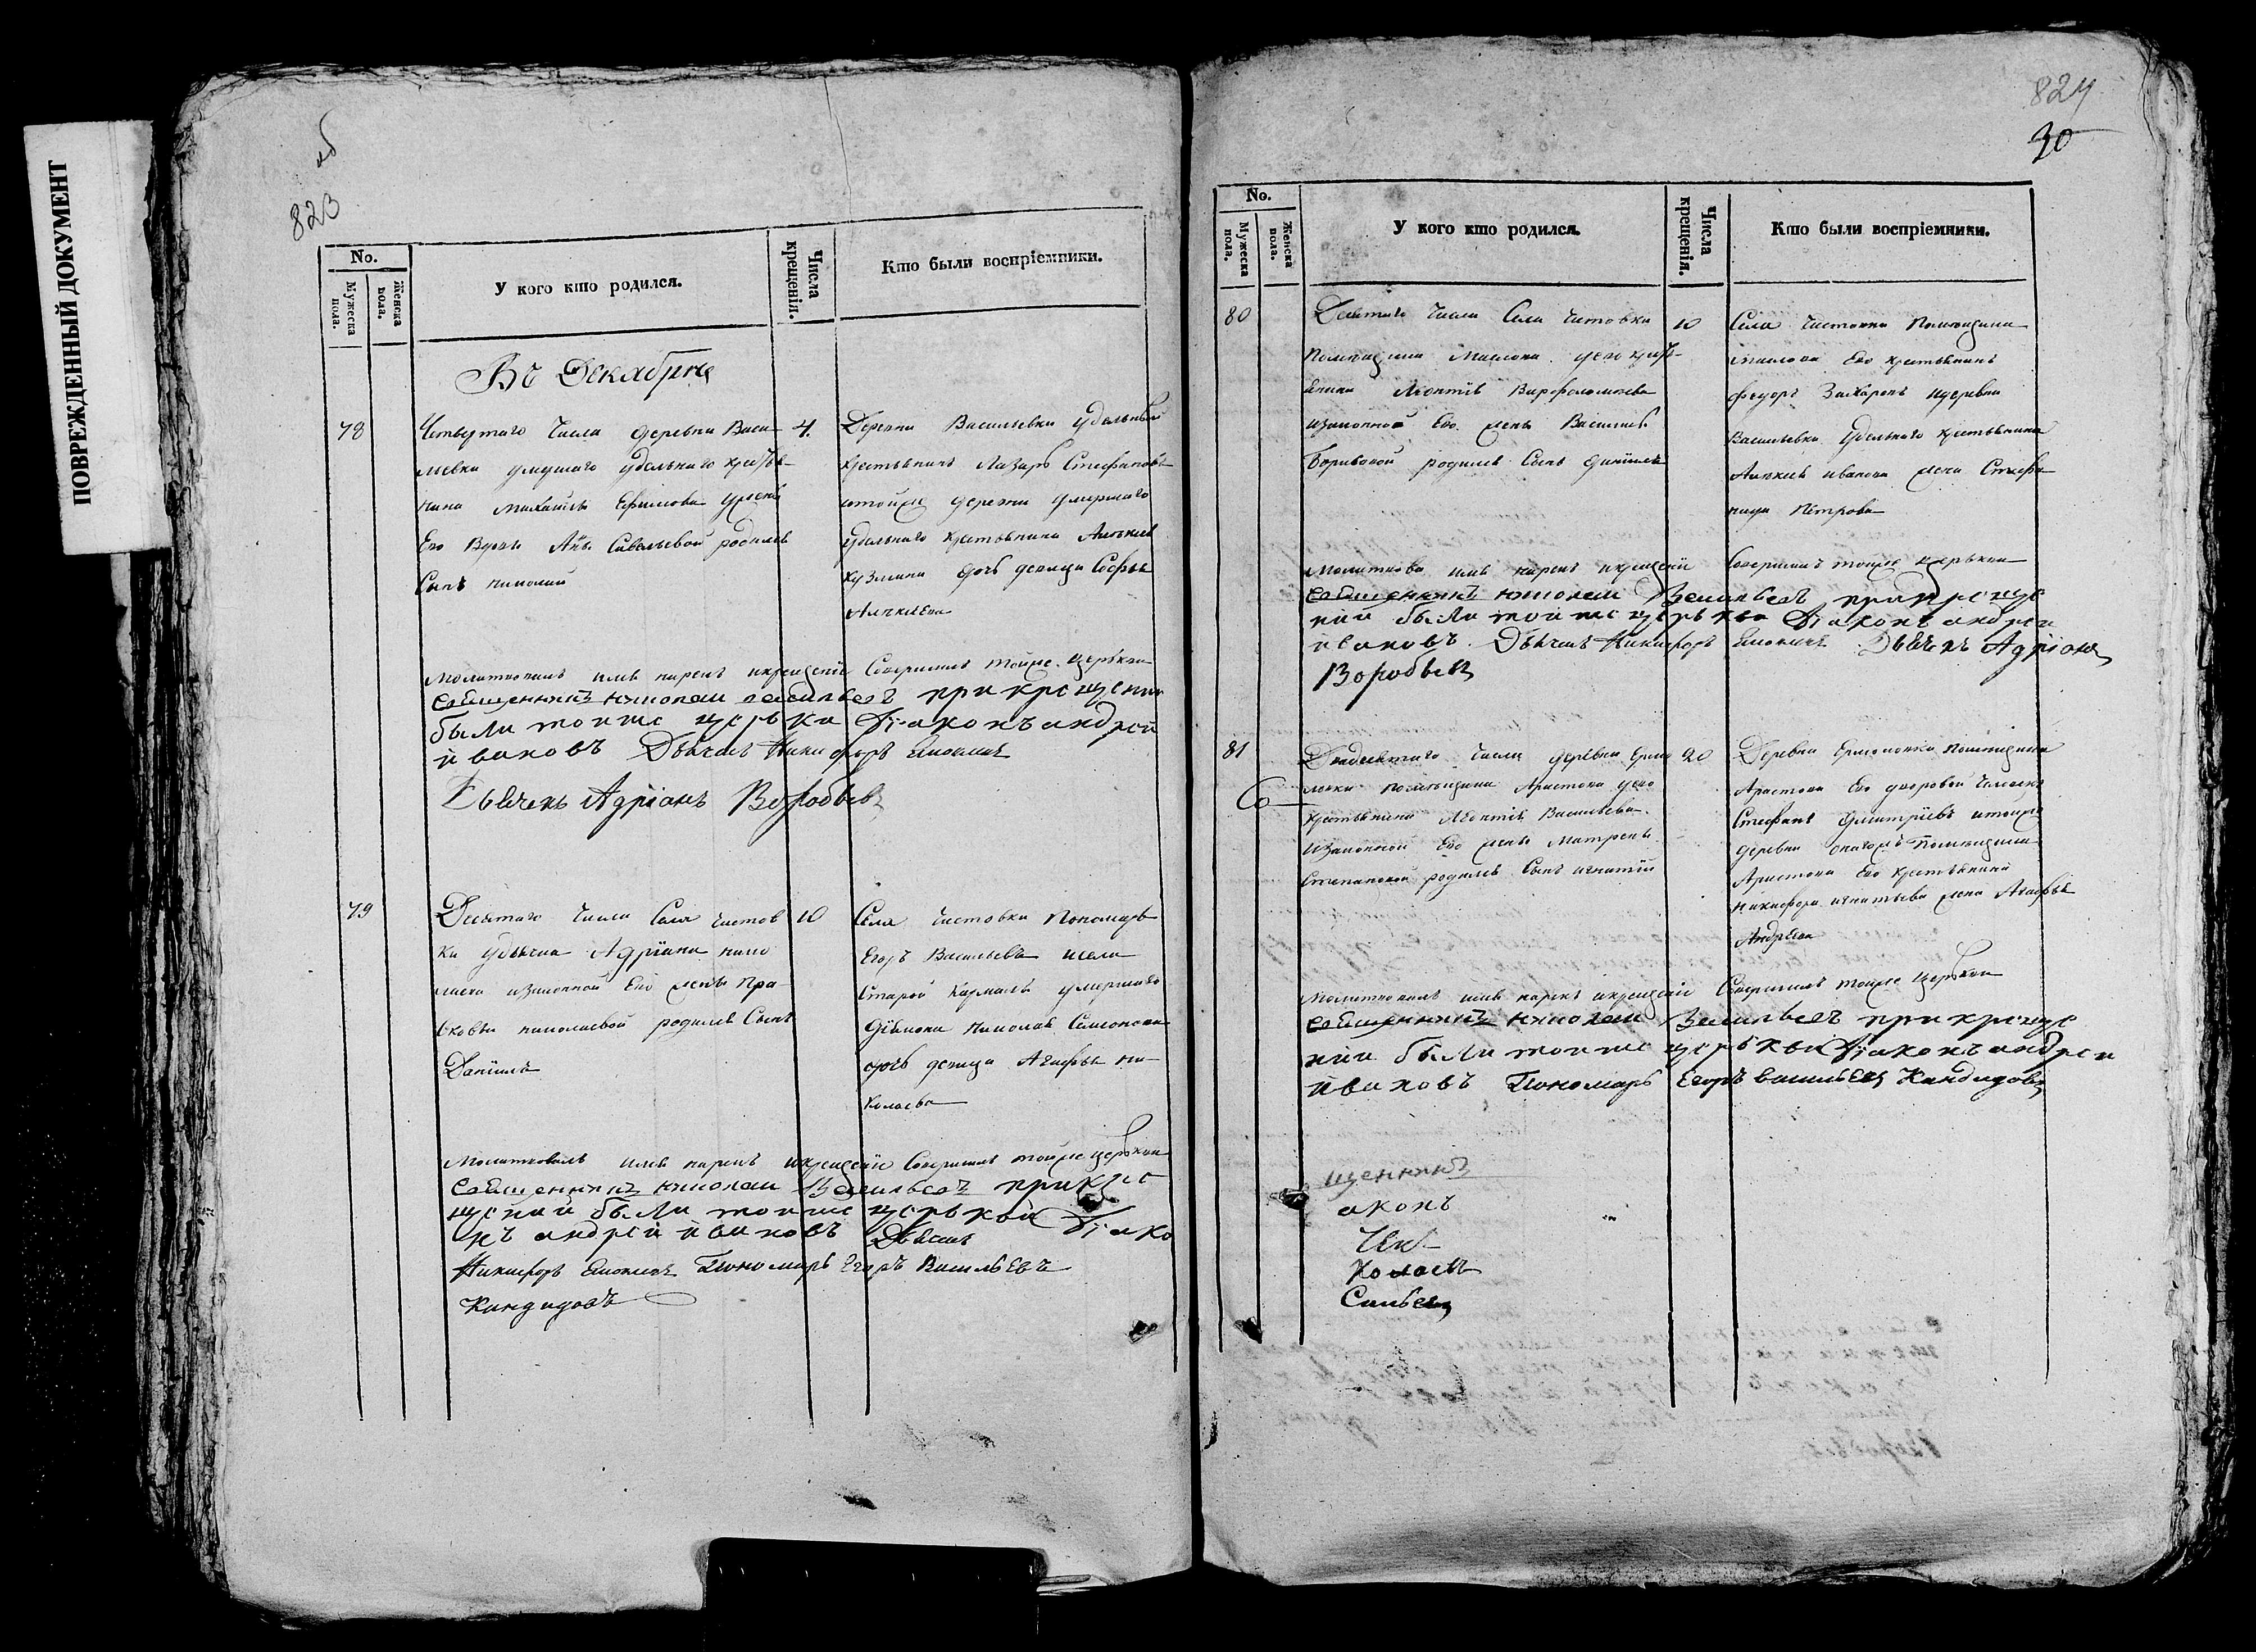 ПОВРЕЖДЕННЫЙ ДОКУМЕНТ
об
823
No.
Мужеска пола.
Женска пола.
У кого кто родился.
Числа крещенія.
Кто были воспріемники.
Въ Декабрѣ
78
Четвертаго Числа деревни Васи-
льевки умершаго удѣльнаго крестья-
нина Михайлы Ефимова
Его Вдовы Анны Савельевой родился
Сынъ николай
4.
Деревни Васильевки удѣльный
крестьянинъ Лазарь Стефановъ
итойже деревни умершаго
удѣльнаго крестьянина Алексея
кузмина дочь девица Софья
Алексеева
Молитвовалъ имя нарекъ икрещеніе Совершилъ тойже церькви
священникъ николаи васильевъ при крещении
были тоиже церькви Діаконъ андреи
ивановъ Дьячекъ Никифоръ
Дьячекъ Адріанъ Воробьевъ
79
Десятаго Числа Села Чистов
ки удьячка Адріана нико
лаева изаконной Его жены Пра-
сковьи николаевой родился Сынъ
Даніилъ
10
Села Чистовки Пономарь
Егоръ Васильевъ исела
Старой Кармалы умершаго
Діакона Николая Симонова
дочь девица Агафья Ни-
колаева
Молитвовалъ имя нарекъ икрещеніе Совершилъ тойже церькви
священникъ николаи Васильевъ прикре
щении были тоиже церькви Діако
нъ андреи ивановъ Дьячекъ
Никифоръ Пономарь Егоръ Васильевъ
Кандидовъ
824
30
No.
Мужеска пола.
Женска пола.
У кого кто родился.
Числа крещенія.
Кто были воспріемники.
80
Десятаго Числа Села Чистовки
Помещика Маслова уего кресть-
янина Леонтія Варфоломеева
изаконной Его жены Василисы
Борисовой родился Сынъ Даніилъ
10
Села Чистовки Помещика
Маслова Его крестьянинъ
федоръ Захаровъ идеревни
Васильевки удѣльнаго крестьянина
Алексея иванова жена Стефа
нида Петрова
Молитвова имя нарекъ икрещеніе Совершилъ тойже церькви
священникъ николаи Васильевъ прикреще
нии были тоиже церькви Діаконъ андреи
ивановъ Дьячекъ Никифоръ Дьячекъ Адріанъ
Воробьевъ
81
Двадесятаго Числа деревни Ермо
ловки помещика Аристова уего
крестьянина Леонтія Васильева
изаконной Его жены Матрены
Степановой родился Сынъ игнатій
20
Деревни Ермоловки Помещика
Аристова Его дворовой Человекъ
Стефанъ Дмитріевъ итойже
деревни онагожъ Помещика
Аристова Его крестьянина
Никифора игнатьева жена Агафья
Андреева
Молитвовалъ имя нарекъ икрещеніе Совершилъ тойже церькви
священникъ николаи Васильевъ при креще
нии были тоиже церькви Діаконъ андреи
ивановъ Пономарь Егоръ васильевъ Кандидовъ
щенникъ
аконъ
колаевъ
сильевъ